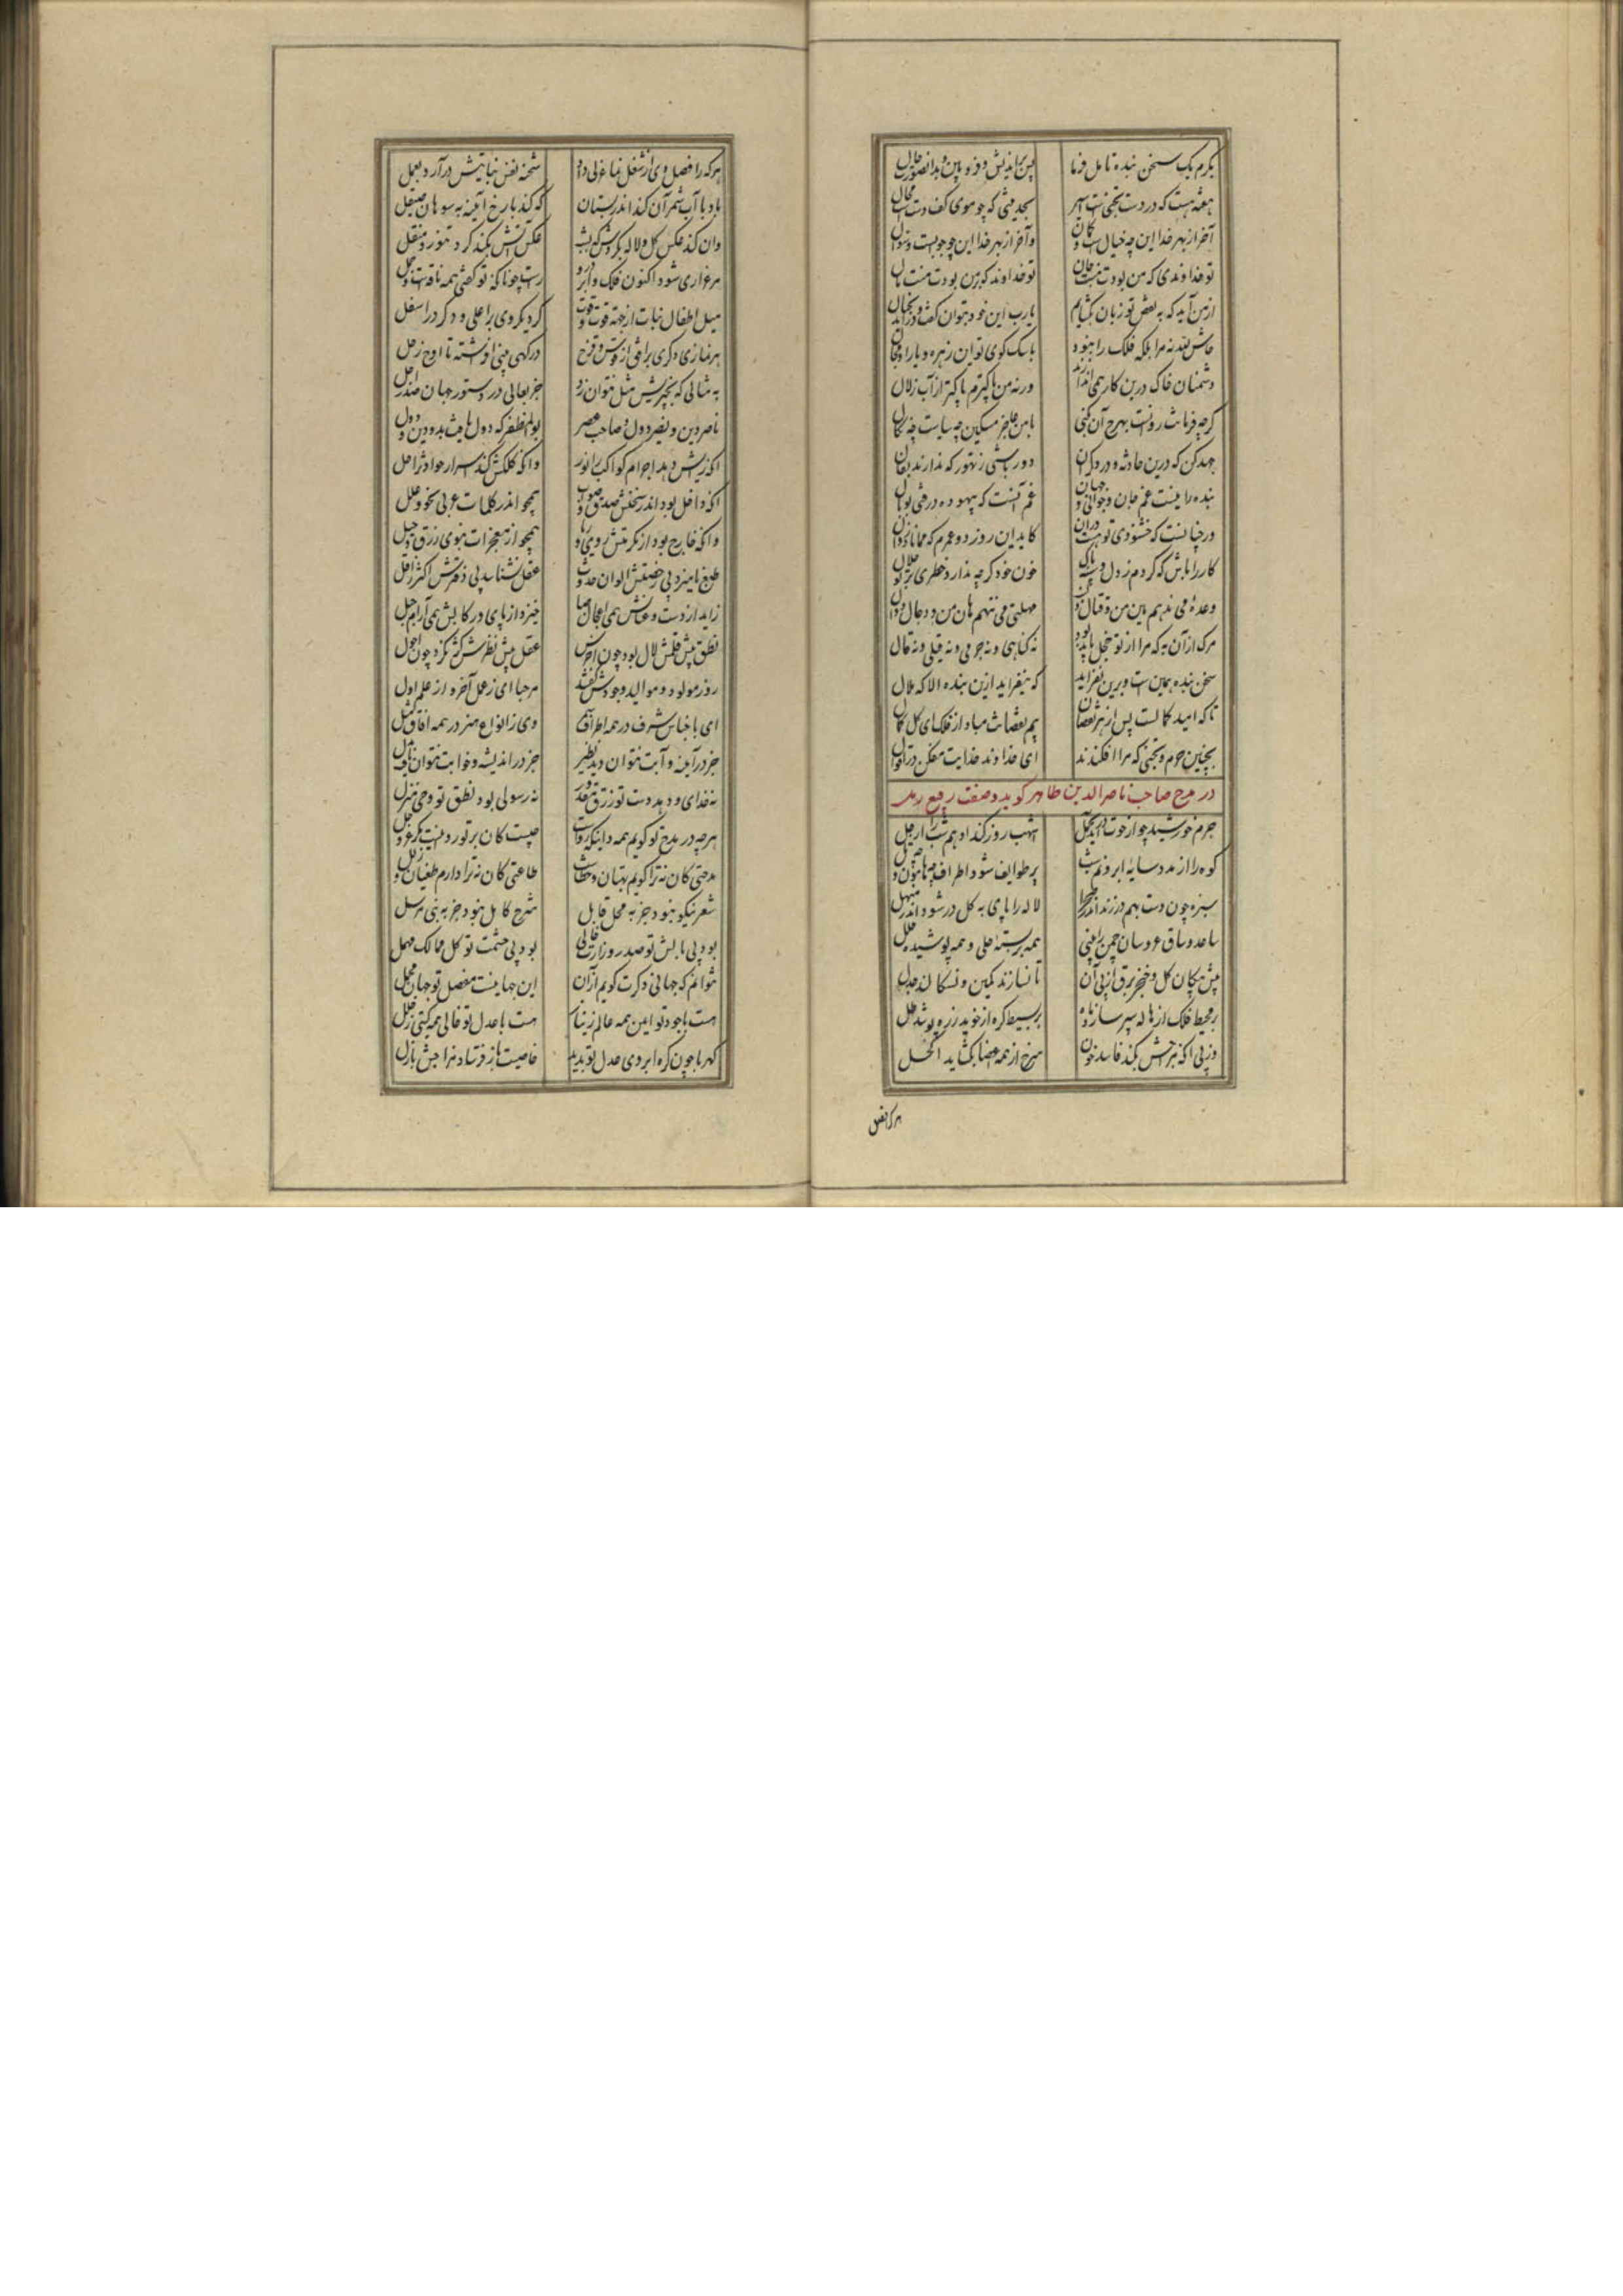 بکرم یک سخن بنده تامل فرما
پس براندیش و فرو بین و بدان صورت حال
هفته هست که در دست
بجدیثی که چو موی کف دست محال
آخر از بهر خدا این چه خیالست و گمان
و آخر از بهر خدا این چه جوابست و سوال
تو خداوندی که من بودت منت جان
تو خداوند که بر من بودت منت مال
از من آید که به نقض تو زبان بگشایم
یارب این خود بتوان گفت و درآید بخیال
حاش لله نه مرا بلکه فلک را نبود
با سگ کوی تو این زهره و یارا و مجال
دشمنان خاک درین کار همی اندازند
ورنه من پاکترم پاکتر از آب زلال
گرچه فرمانت روانست بهرچ آن کنی
با من عاجز مسکین چه سیاست چه نکال
جهد کن که درین حادثه و درد گران
دور باشی ز تهور که ندارند بفال
بنده را نیست غم جان و جوانی و جهان
غم آنست که بیهوده درفتی بوبال
ور چنانست که خشنودی تو هست در آن
کار را باش که کردم ز دل و پاک
خون خود گرچه ندارد خطری بر تو حلال
وعده می ندهم هین من و قتال کنون
مهلتی می ننهم هان من و دجال
مرگ از آن به که مرا از تو خجل باید بود
نه گناهی و نه جرمی و نه قیلی و نه قال
سخن بنده همین است و برین نفزاید
که نیفزاید ازین بنده الا که ملال
تا که امید کمالست پس از هر نقصان
بیم نقصانت مباد از فلک ای کل کمال
بچنین جرم و تجنی که مرا افکندند
ای خداوند خدایت مفکن در اقوال
در مدح صاحب ناصرالدین طاهر گوید و صفت ربیع
جرم خورشید چو از حوت درآید بحمل
اشهب روز کند ادهم شب را ارجل
کوه را از مدد سایه ابر و نم شب
پر طرایف شود اطراف چه هامون و چه تل
سبزه چون دست بهم در زند اندر صحرا
لاله را پای به گل در شود اندر منهل
ساعد و ساق عروسان چمن را بینی
همه بر بسته حلی و همه پوشیده حلل
پیش پیکان گل و خنجر برق از پی آن
تا نسازند کمین و نسگالند جدل
بر محیط فلک از هاله سپر سازد ماه
بر بسیط کره از خوید زره پوشد طل
وز پی آنکه مزاجش نکند فاسد خون
سرخ از همه اعضا بگشاید اکحل
هرکرا فصل
هرکه را فصل دی از شغل نما عزلی داد
شحنه نفس نباتیش درآرد بعمل
باد با آب شمر آن کند اندر بستان
که کند با رخ آیینه به سوهان صیقل
وان کند عکس گل و لاله بگردش که بشب
عکس آتش بکند گرد تنور و منقل
مرغزاری شود اکنون فلک و ابر درو
راست چونانکه تو گفتی همه ناقه است و جمل
میل اطفال نبات از جهت قوت و قوت
کرده یک روی براعلی و دگر در اسفل
هر نمازی دگری بر افق از قوس و قزح
درگهی بینی افراشته تا اوج زحل
به مثالی که بچیزیش مثل نتوان زد
جز بعالی در دستور جهان صدر اجل
ناصر دین و نصیر دول و صاحب عصر
بوالمظفر که دول یافت بدو دین و دول
آنکه رایش دهد اجرام کواکب را نور
وانکه کلکش کند اسرار حوادث را حل
آنکه داخل بود اندر سخنش صدق و صواب
همچو اندر کلمات عربی نحو و علل
وانکه خارج بود از مکرمتش روی و ریا
همچو از معجزات نبوی زرق و حیل
طبع نامیزد بی رخصتش الوان حدوث
عقل نشناسد بی دفترش اکثر ز اقل
زاید از دست و عنانش همی اعجاز صبا
خیزد از پای و رکابش همی آرام جبل
نطق پیش قلمش لال بود چون اخرس
عقل پیش نظرش کژ نگرد چون احول
روز مولود موالید وجودش گفتند
مرحبا ای ز عمل آخر و از علم اول
ای باجناس شرف در همه اطراف
وی ز انواع هنر در همه آفاق مثل
جز در آیینه و آبت نتوان دید نظیر
جز در اندیشه و خوابت نتوان یافت بدل
نه خدایی و دهد دست تو رزق مقدور
نه رسولی بود نطق تو وحی منزل
هرچه در مدح تو گویم همه دانی که رواست
چیست کان بر تو روا نیست مگر عز و جل
مدحتی کان نه ترا گویم بهتان و خطاست
طاعتی کان نه ترا دارم طغیان و زلل
شعر نیکو نبود جز به محل قابل
شرح کامل نبود جز به نبی مرسل
بود بی بالش تو صدر وزارت خالی
بود بی حشمت تو کل ممالک مهمل
نتوانم که جهانی دگرت گویم از آن
این جهانیست مفصل تو جهان مجمل
هست باجود تو ایمن همه عالم ز نیاز
هست با عدل تو خالی همه گیتی ز خلل
کهربا چون گره ابروی عدل تو بدید
خاصیت باز فرستاد مزاجش بازل